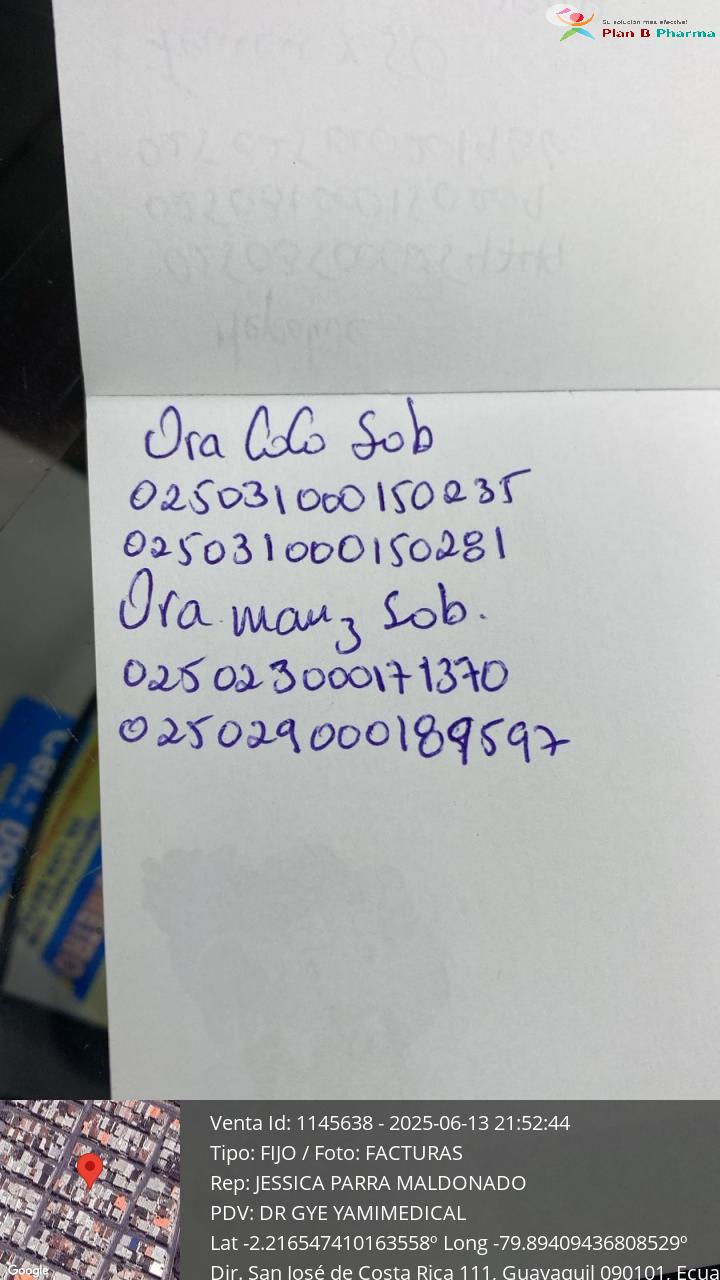 Su solución más efectiva!
Plan B Pharma
Ora CoCo Sob
025031000150235
025031000150281
Ora manz Sob.
025023000171370
025029000189597
Venta Id: 1145638 - 2025-06-13 21:52:44
Tipo: FIJO / Foto: FACTURAS
Rep: JESSICA PARRA MALDONADO
PDV: DR GYE YAMIMEDICAL
Lat -2.216547410163558º Long -79.89409436808529º
Dir. San José de Costa Rica 111, Guayaquil 090101, Ecua
Google